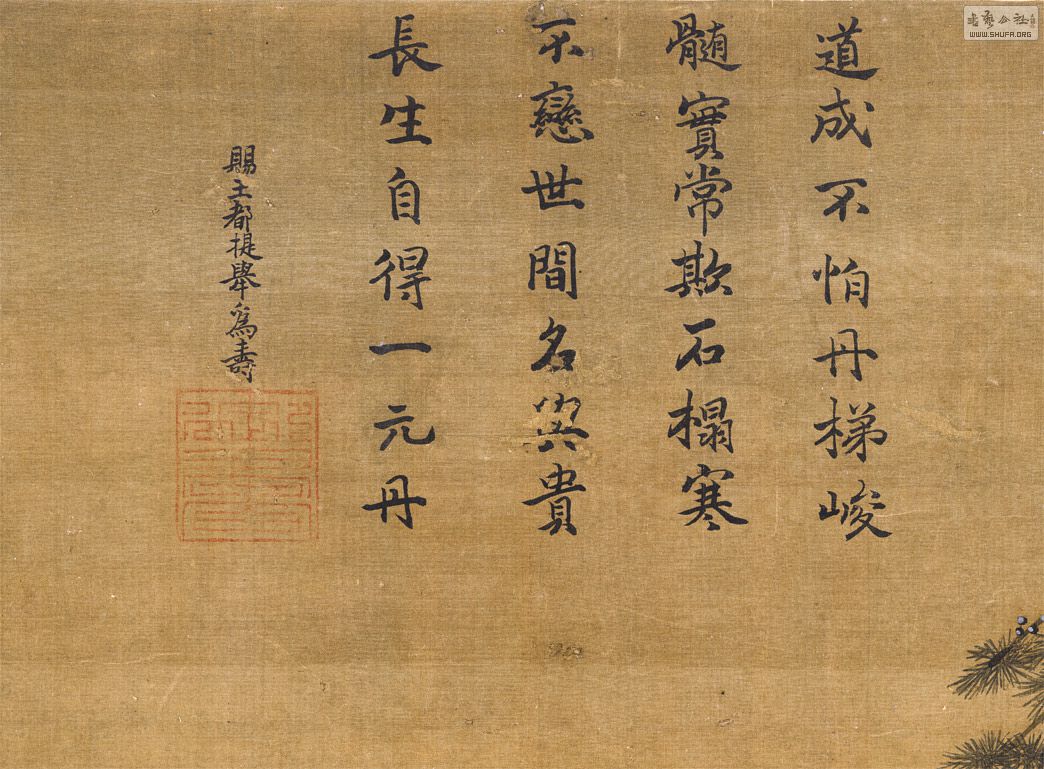 道成不怕丹梯峻
髓實常欺石榻寒
不戀世間名與貴
長生自得一元丹
賜王都提舉爲壽
书艺公社
WWW.SHUFA.ORG